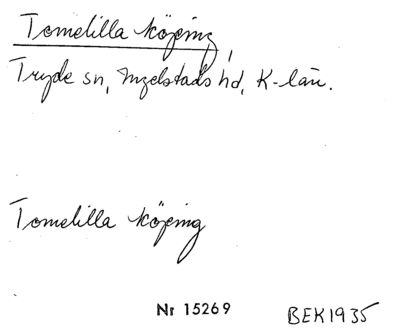 Tomelilla köping,
Tryde sn, Ingelstads hd, K-län.
Tomelilla köping
Nr 15269
BEK1935